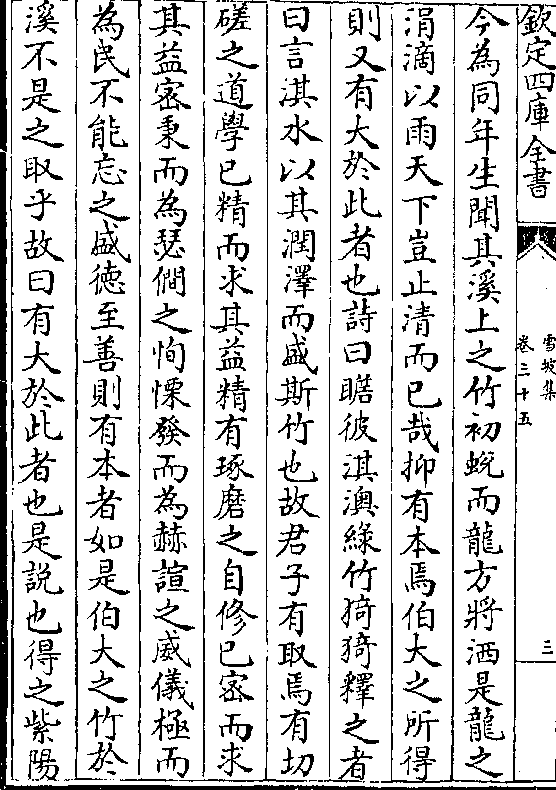 欽定四庫全書
雪坡集
卷三十五
三
今為同年生聞其溪上之竹初蛻而龍方將洒是龍之
涓滴以雨天下豈止清而已哉抑有本焉伯大之所得
則又有大於此者也詩曰瞻彼淇澳綠竹猗猗釋之者
曰言淇水以其潤澤而盛斯竹也故君子有取焉有切
磋之道學已精而求其益精有琢磨之自修已密而求
其益密秉而為瑟僩之恂慄發而為赫諠之威儀極而
為民不能忘之盛德至善則有本者如是伯大之竹於
溪不是之取乎故曰有大於此者也是說也得之紫陽